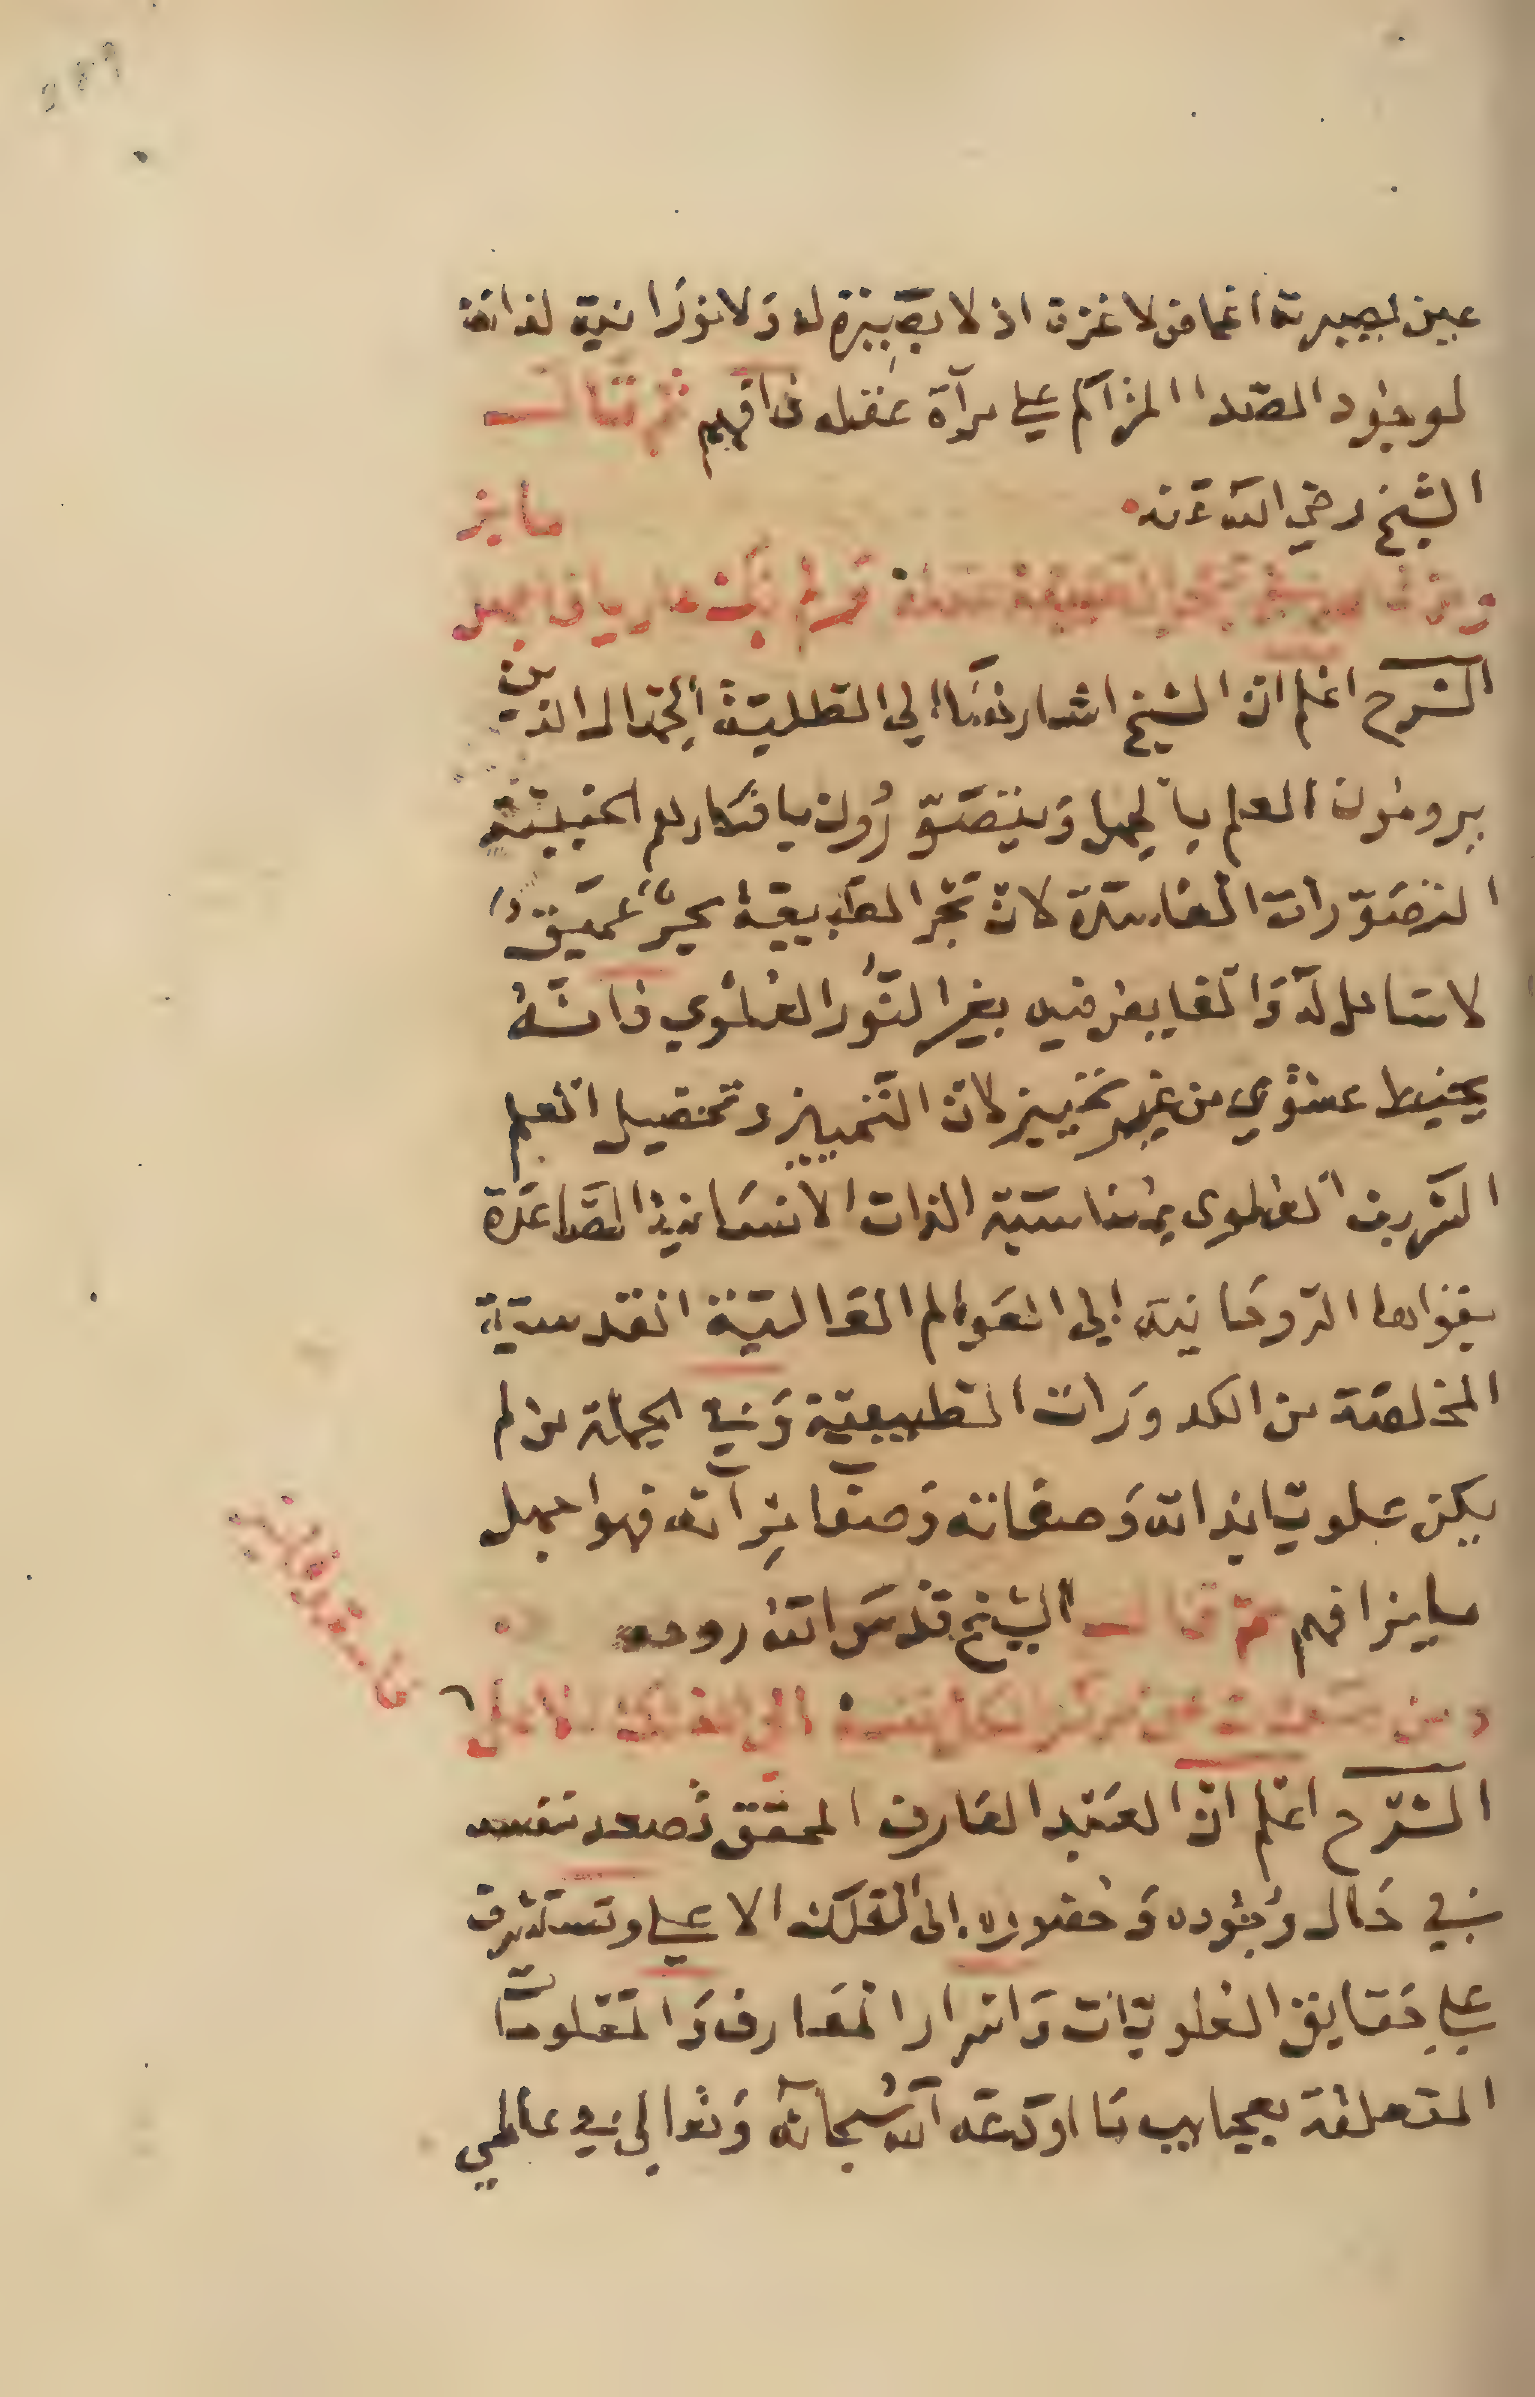 عين بصيرته اغماض لا غرة اذ لا بصيرة له وَلا نورَانية لذاته
لوجود الصّدا المتراكم علي مرآة عقله فافهم ثم قال
الشيخ رضي الله عنه
ساير
الشرح اعلم انّ الشيخ اشار الي الطلبة الجهال الذين
يرومون العلم بالجهل وَيتصَوّرُون بافكارهم الخبيثة
التصَوّرات الفاسدة لان بَحْر الطبيعة بحرٌ عميق
لا ساحل لَهُ وَالغايض فيه بغير النُّور العُلْوي فانهُ
يخبط عشوي من غير تمييز لان التّمييز وتحصيل العلم
الشريف العلوى بمناسبة الذات الانسَانية الصَّاعدَة
بقواها الرّوحَانية الي العَوالم العَالية القدسيّة
المخلصَة من الكدورَات الطبيعيّة وَفي الجملة من لم
يكن علويّا بذاته وَصفاته وَصفا مرآته فهو اجهل
ساير افهم ثم قال الشيخ قدسَ الله روحه
ومن صعدت عن مركز الكل نفسه الى الفلك الاعلى
الشرح اعلم انّ العَبد العَارف المحقق تصعد نفسه
في حَال وُجُوده وَحضوره الى الفلك الاعلي وتستشرق
علي حَقايق العلويّات وَاسرار المعَارف وَالمعَلومَات
المتعلقة بعجايب مَا اودَعَه الله سُبحانه وَتعالى في عالمي